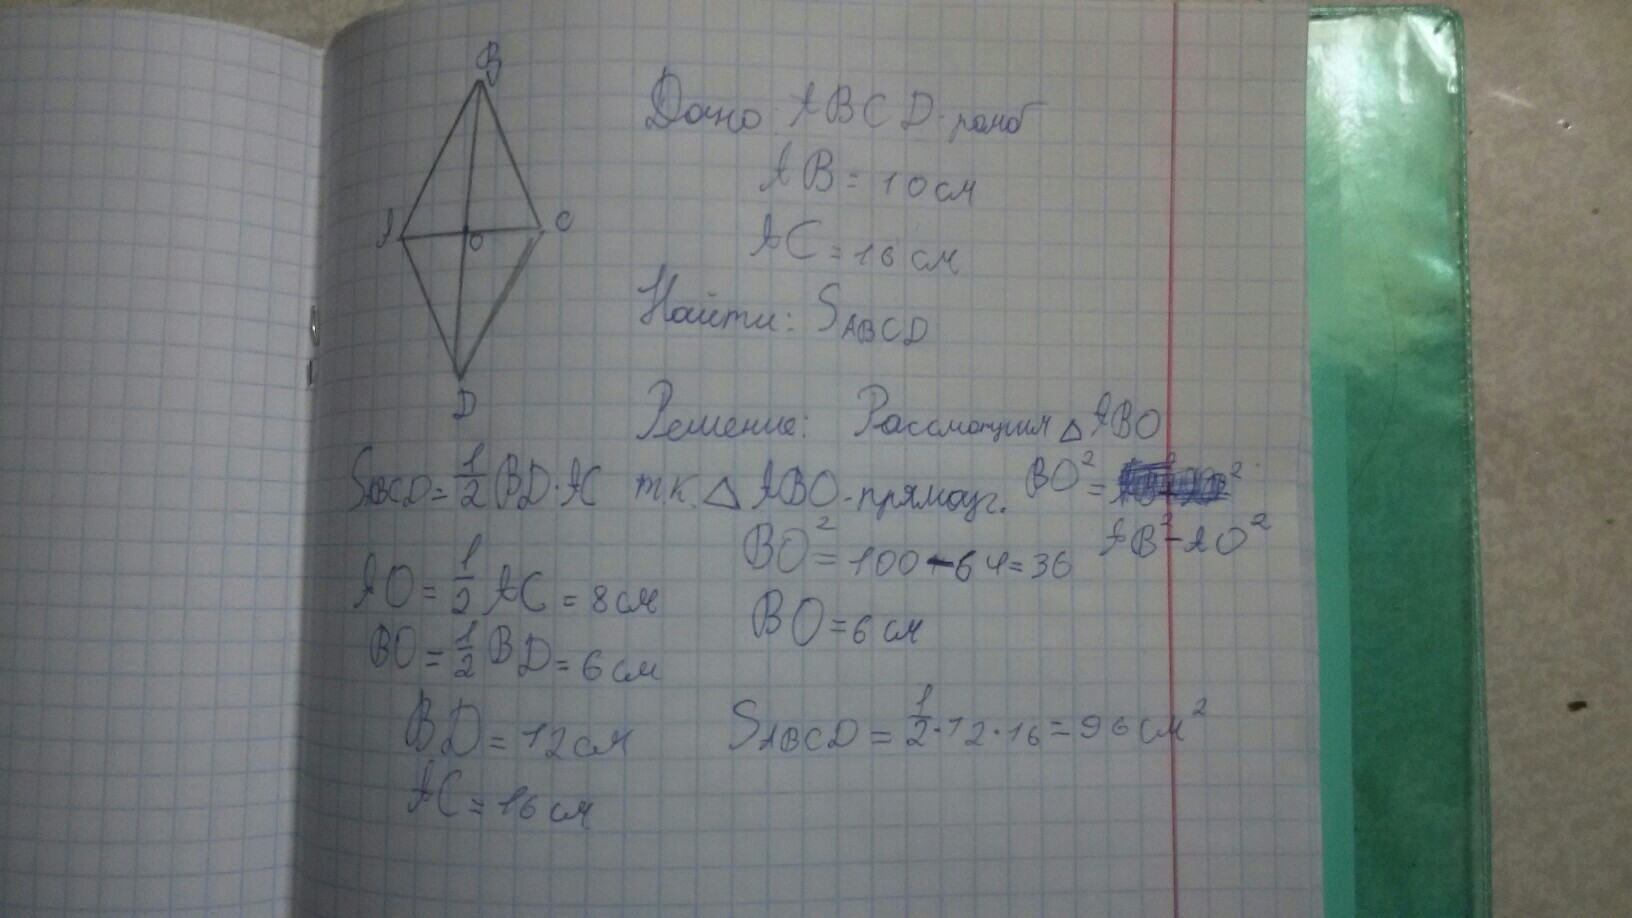 B
A
O
C
D
Дано: ABCD-ромб
AB = 10 см
AC = 16 см
Найти: S ABCD
Решение: Рассмотрим △ ABO
S ABCD = 1/2 BD · AC т.к. △ ABO - прямоуг. BO² =
AB² - AO²
BO² = 100 - 64 = 36
AO = 1/2 AC = 8 см
BO = 6 см
BO = 1/2 BD = 6 см
BD = 12 см
S ABCD = 1/2 · 12 · 16 = 96 см²
AC = 16 см